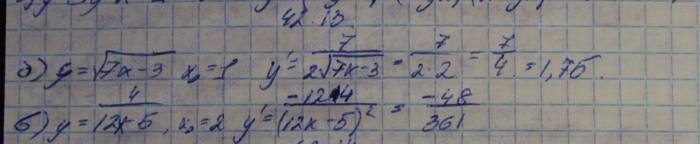 42.13.
б) y = √(7x-3) x₀ = 1 y' = 7/(2√(7x-3)) = 7/(2·2) = 7/4 = 1,75.
б) y = 4/(12x-5), x₀ = 2 y' = (-12·4)/(12x-5)² = -48/361